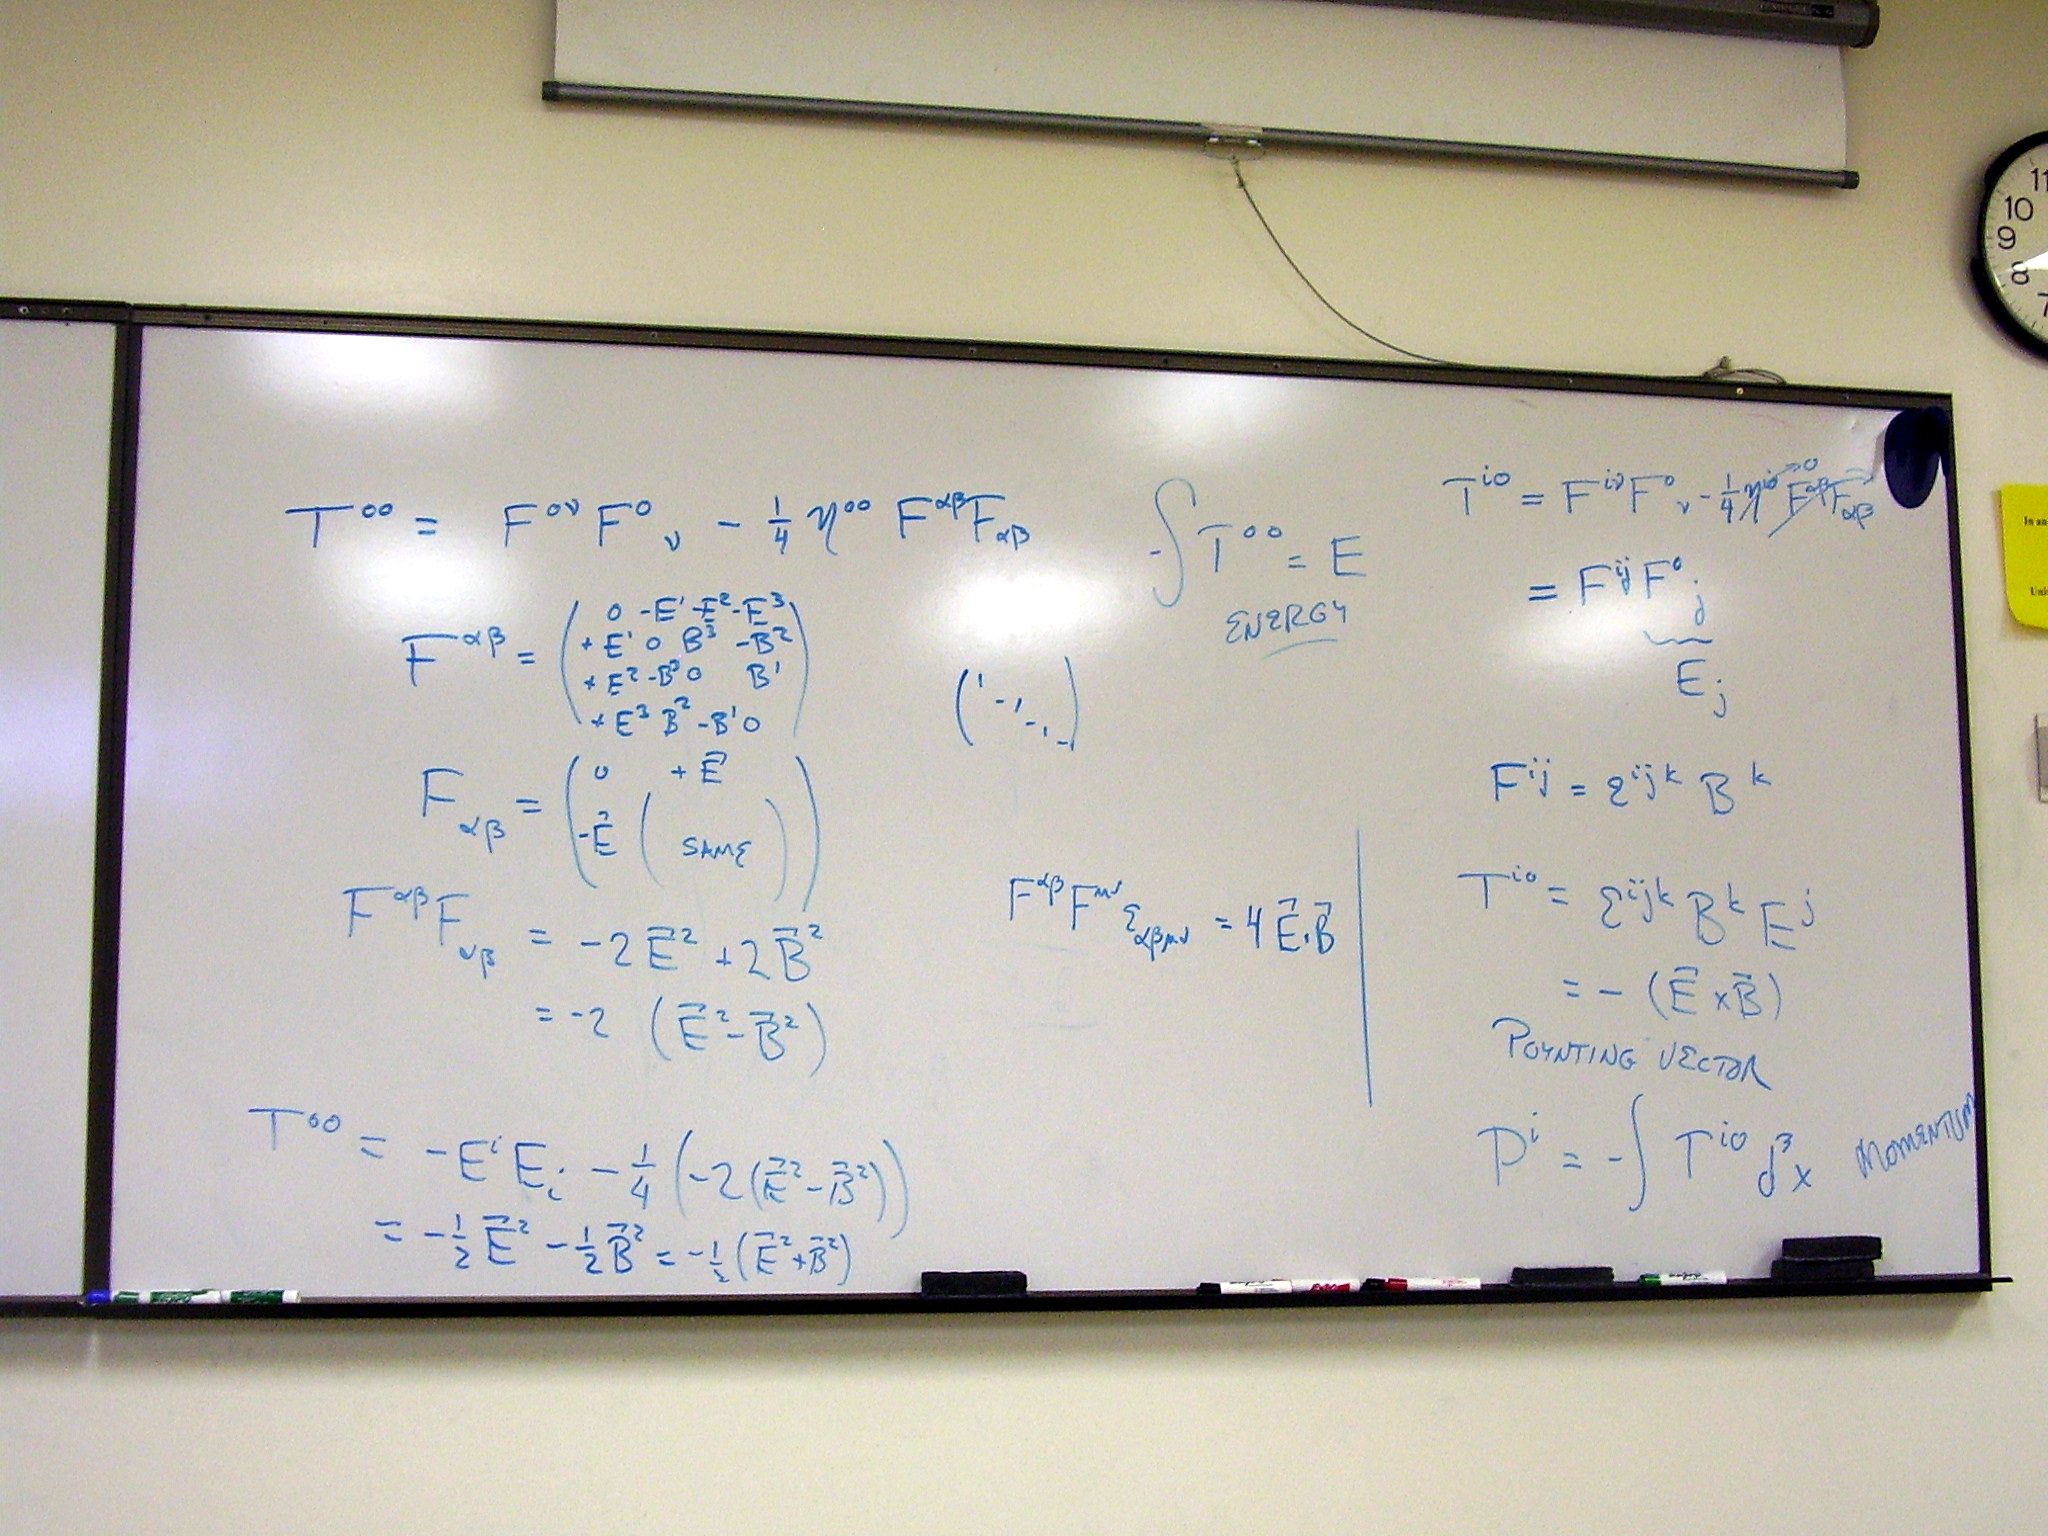 T⁰⁰ = F⁰ᵛ F⁰ᵥ - 1/4 η⁰⁰ F^αβ F_αβ
F^αβ = ( 0 -E¹ -E² -E³
+E¹ 0 B³ -B²
+E² -B³ 0 B¹
+E³ B² -B¹ 0 )
F_αβ = ( 0 +E⃗
-E⃗ ( SAME ) )
F^αβ F_αβ = -2E⃗² + 2B⃗²
= -2 (E⃗² - B⃗²)
T⁰⁰ = -Eⁱ Eᵢ - 1/4 (-2(E⃗² - B⃗²))
= -1/2 E⃗² - 1/2 B⃗² = -1/2 (E⃗² + B⃗²)
-∫ T⁰⁰ = E
ENERGY
(1 -1 -1 -)
F^αβ F^μν ε_αβμν = 4 E⃗·B⃗
T^i0 = F^iν F⁰_ν - 1/4 η^i0 F^αβ F_αβ → 0
= F^ij F⁰_j
E_j
F^ij = ε^ijk B^k
T^i0 = ε^ijk B^k E^j
= - (E⃗ × B⃗)
POYNTING VECTOR
P^i = -∫ T^i0 d³x MOMENTUM
11
10
9
8
7
In an